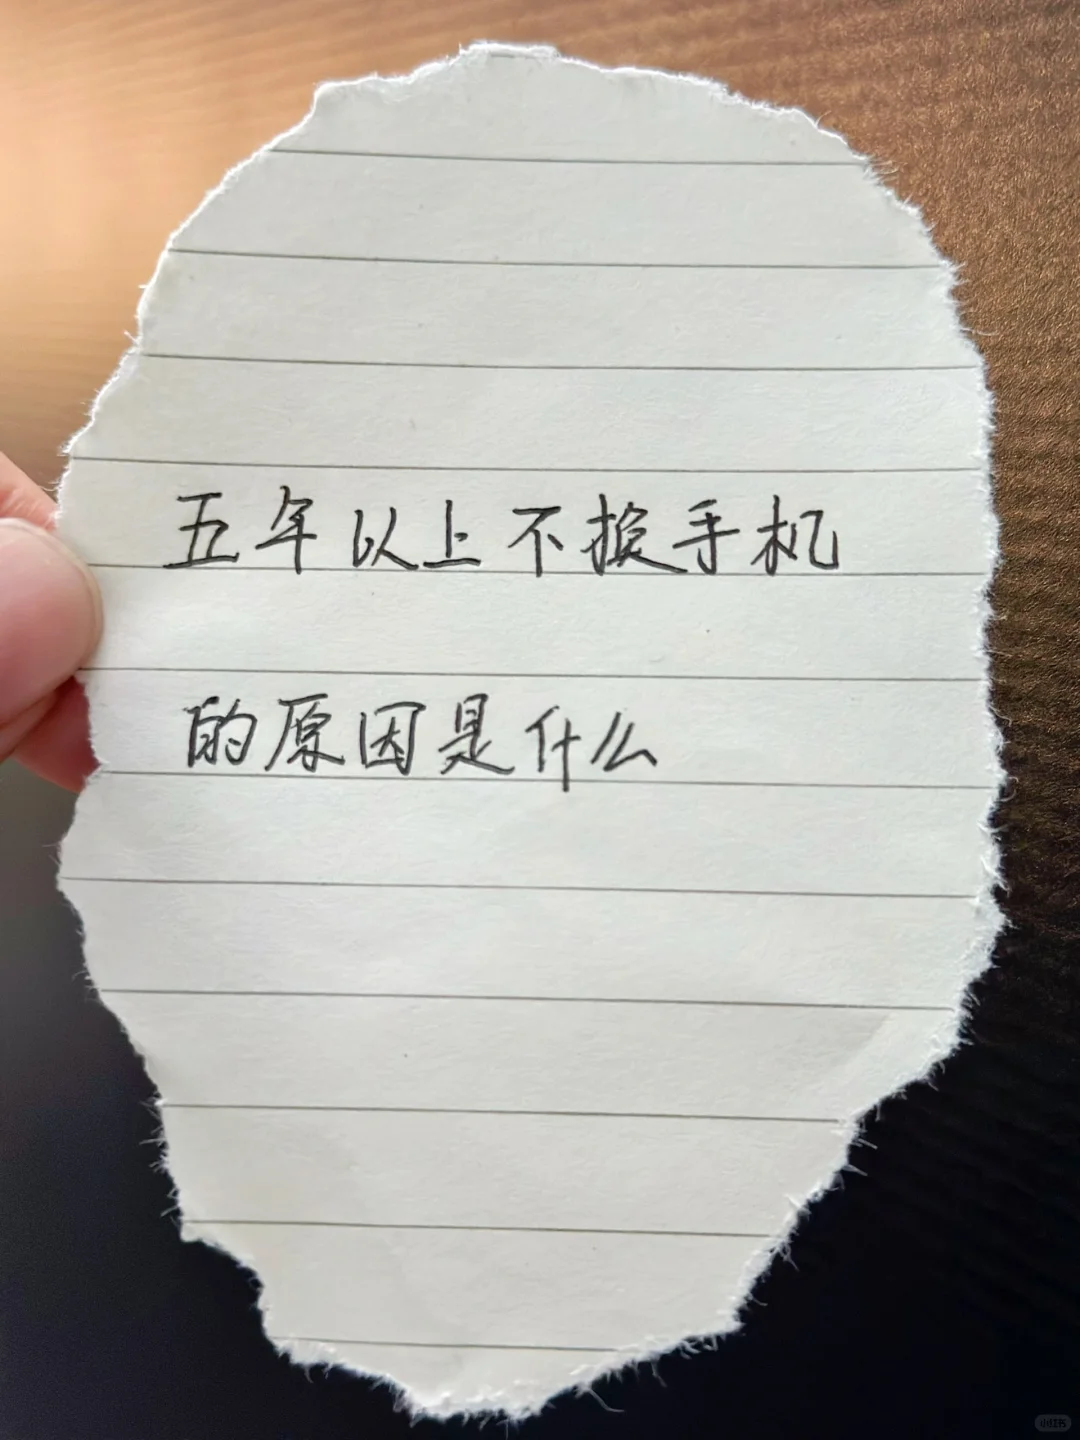 五年以上不换手机
的原因是什么
小红书